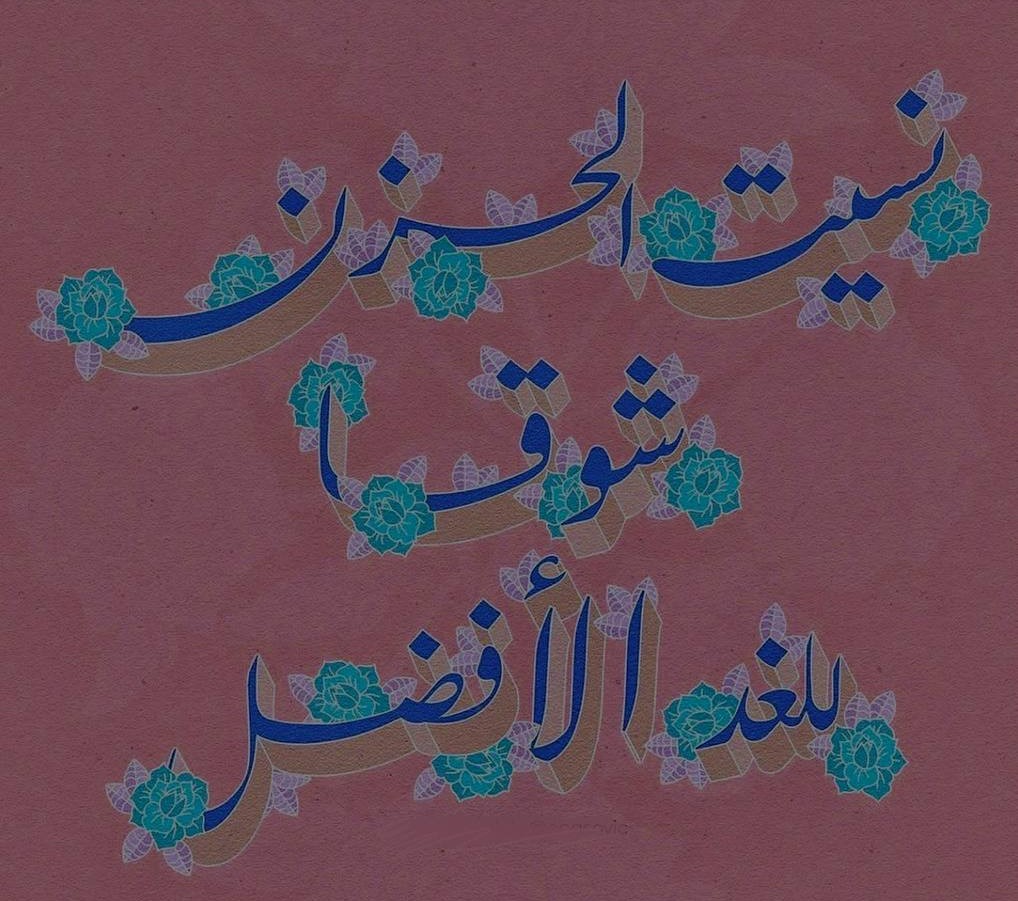 نسيت الحزن
شوقا
للغد الأفضل